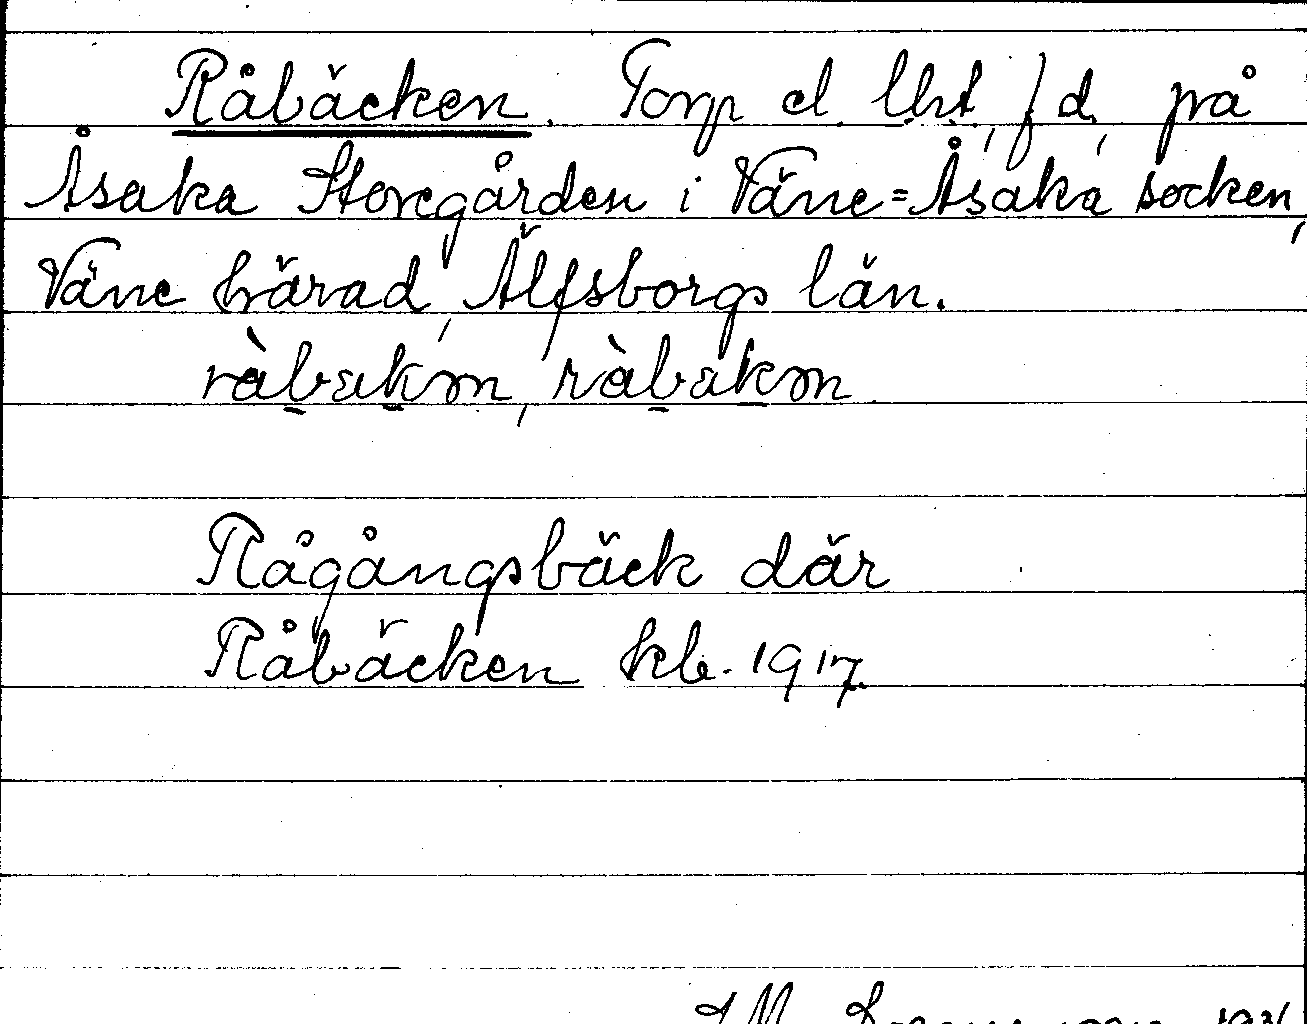 Råbäcken. Torp el. lht, f d, på
Åsaka Storegården i Väne=Åsaka socken,
Väne härad, Älfsborgs län.
Rågångsbäck där
Råbäcken kb. 1917.